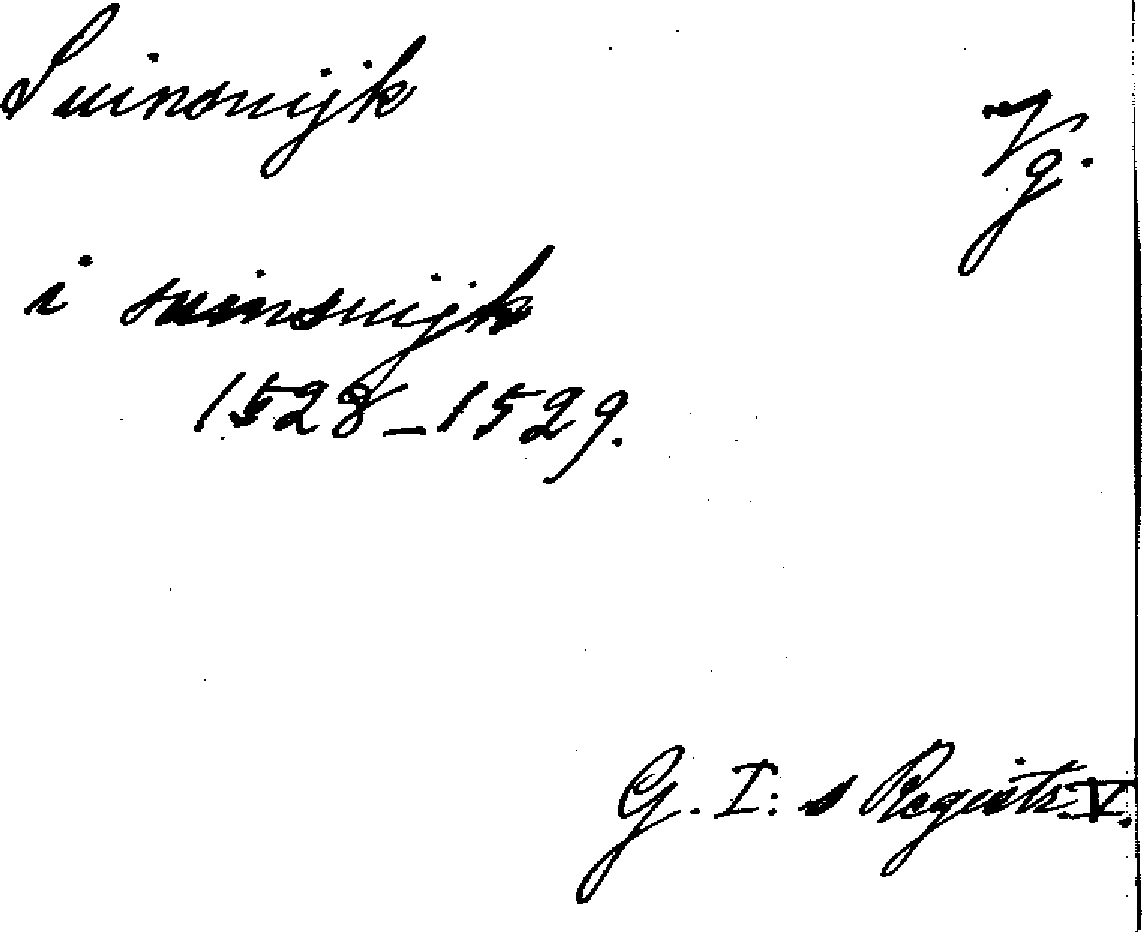 Suinsuijk
Vg.
i suinsuijk
1528–1529.
G. I:s Registr. V.